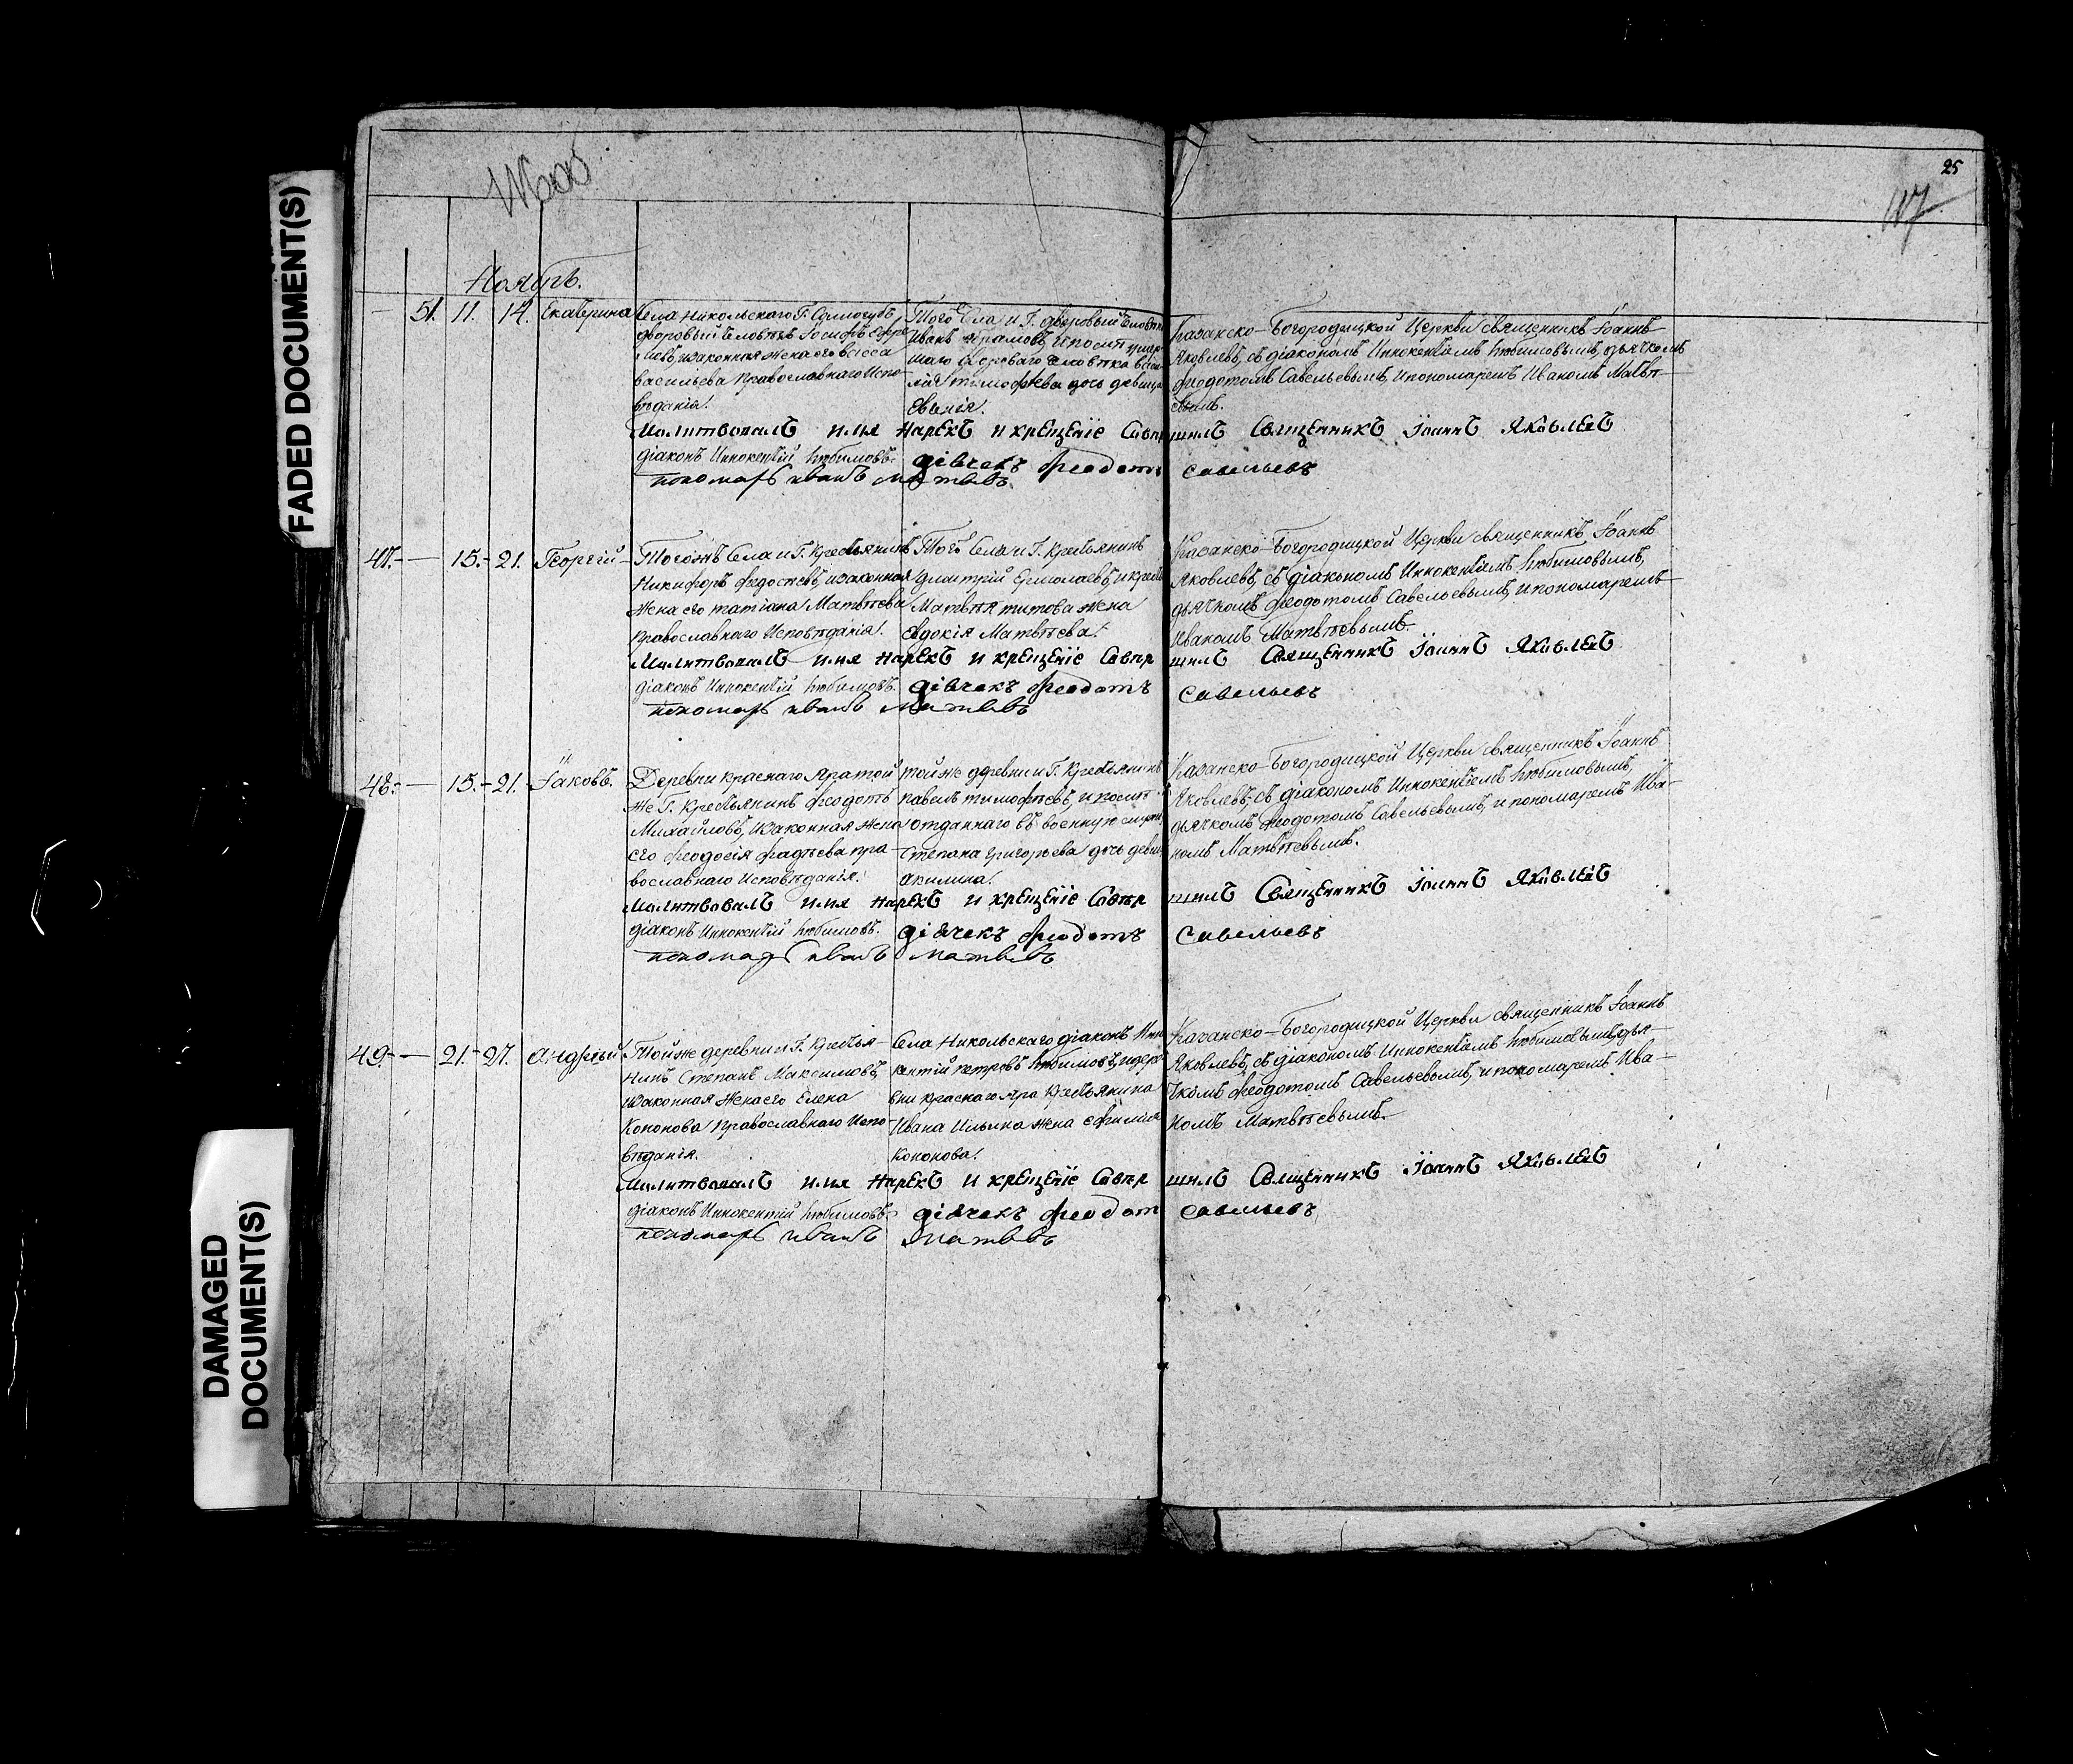 FADED DOCUMENT(S)
DAMAGED
DOCUMENT(S)
25
117
Ноябрь.
— 51. 11. 14. Екатерина
Села Никольскаго Г.
дворовый человѣкъ Іосифъ
законная жена его
Васильева Православнаго Испо-
вѣданія.
Того села и Г. дворовый человѣкъ
Иванъ Абрамовъ, и после умер-
шаго двороваго человѣка
Тимофѣева дочь девица
Казанско-Богородицкой Церкви священникъ Іоаннъ
Яковлевъ, съ діакономъ Иннокентіемъ Любимовымъ, дьячкомъ
Феодотомъ Савельевымъ, и пономаремъ Иваномъ Матвѣ-
евымъ.
Молитвовалъ имя нарекъ и крещеніе совершилъ Священникъ Іоаннъ Яковлевъ
діаконъ Иннокентій Любимовъ. діачекъ Феодотъ Савельевъ
пономарь Иванъ Матвевъ
47. — 15. — 21. Георгій
Тогожъ Села и Г. Крестьянинъ
Никифоръ Федосѣевъ, и законная
жена его Татіана Матвѣева
Православнаго Исповѣданія.
Того Села и Г. Крестьянинъ
Димитрій Ермолаевъ, и крестья
Матвѣя Титова жена
Евдокія Матвѣева.
Казанско-Богородицкой Церкви священникъ Іоаннъ
Яковлевъ, съ діакономъ Иннокентіемъ Любимовымъ,
дьячкомъ Феодотомъ Савельевымъ, и пономаремъ
Иваномъ Матвѣевымъ.
Молитвовалъ имя нарекъ и крещеніе совершилъ Священникъ Іоаннъ Яковлевъ
діаконъ Иннокентій Любимовъ. діачекъ Феодотъ Савельевъ
пономарь Иванъ Матвевъ
48. — 15. — 21. Іаковъ.
Деревни Краснаго Яра той
же Г. Крестьянинъ Феодотъ
Михайловъ, и законная жена
его Феодосія Фадѣева пра-
вославнаго Исповѣданія.
Той же деревни и Г. Крестьянинъ
Павелъ Тимофѣевъ, и после
отданнаго въ военную службу
Степана Григорьева дочь девица
Акилина.
Казанско-Богородицкой Церкви священникъ Іоаннъ
Яковлевъ, съ діакономъ Иннокентіемъ Любимовымъ,
дьячкомъ Феодотомъ Савельевымъ, и пономаремъ Ива-
номъ Матвѣевымъ.
Молитвовалъ имя нарекъ и крещеніе совершилъ Священникъ Іоаннъ Яковлевъ
діаконъ Иннокентій Любимовъ. діачекъ Феодотъ Савельевъ
пономарь Иванъ Матвевъ
49. — 21. — 27. Андрей.
Той же деревни и Г. Крестья-
нинъ Степанъ Максимовъ,
и законная жена его Елена
Кононова Православнаго Испо-
вѣданія.
Села Никольскаго діаконъ Инно
кентій Петровъ Любимовъ, и дере
вни Краснаго Яра Крестьянина
Ивана Ильина жена Ефимія
Кононова.
Казанско-Богородицкой Церкви священникъ Іоаннъ
Яковлевъ, съ діакономъ Иннокентіемъ Любимовымъ, дья-
чкомъ Феодотомъ Савельевымъ, и пономаремъ Ива-
номъ Матвѣевымъ.
Молитвовалъ имя нарекъ и крещеніе совершилъ Священникъ Іоаннъ Яковлевъ
діаконъ Иннокентій Любимовъ. діачекъ Феодот Савельевъ
пономарь Иванъ Матвевъ